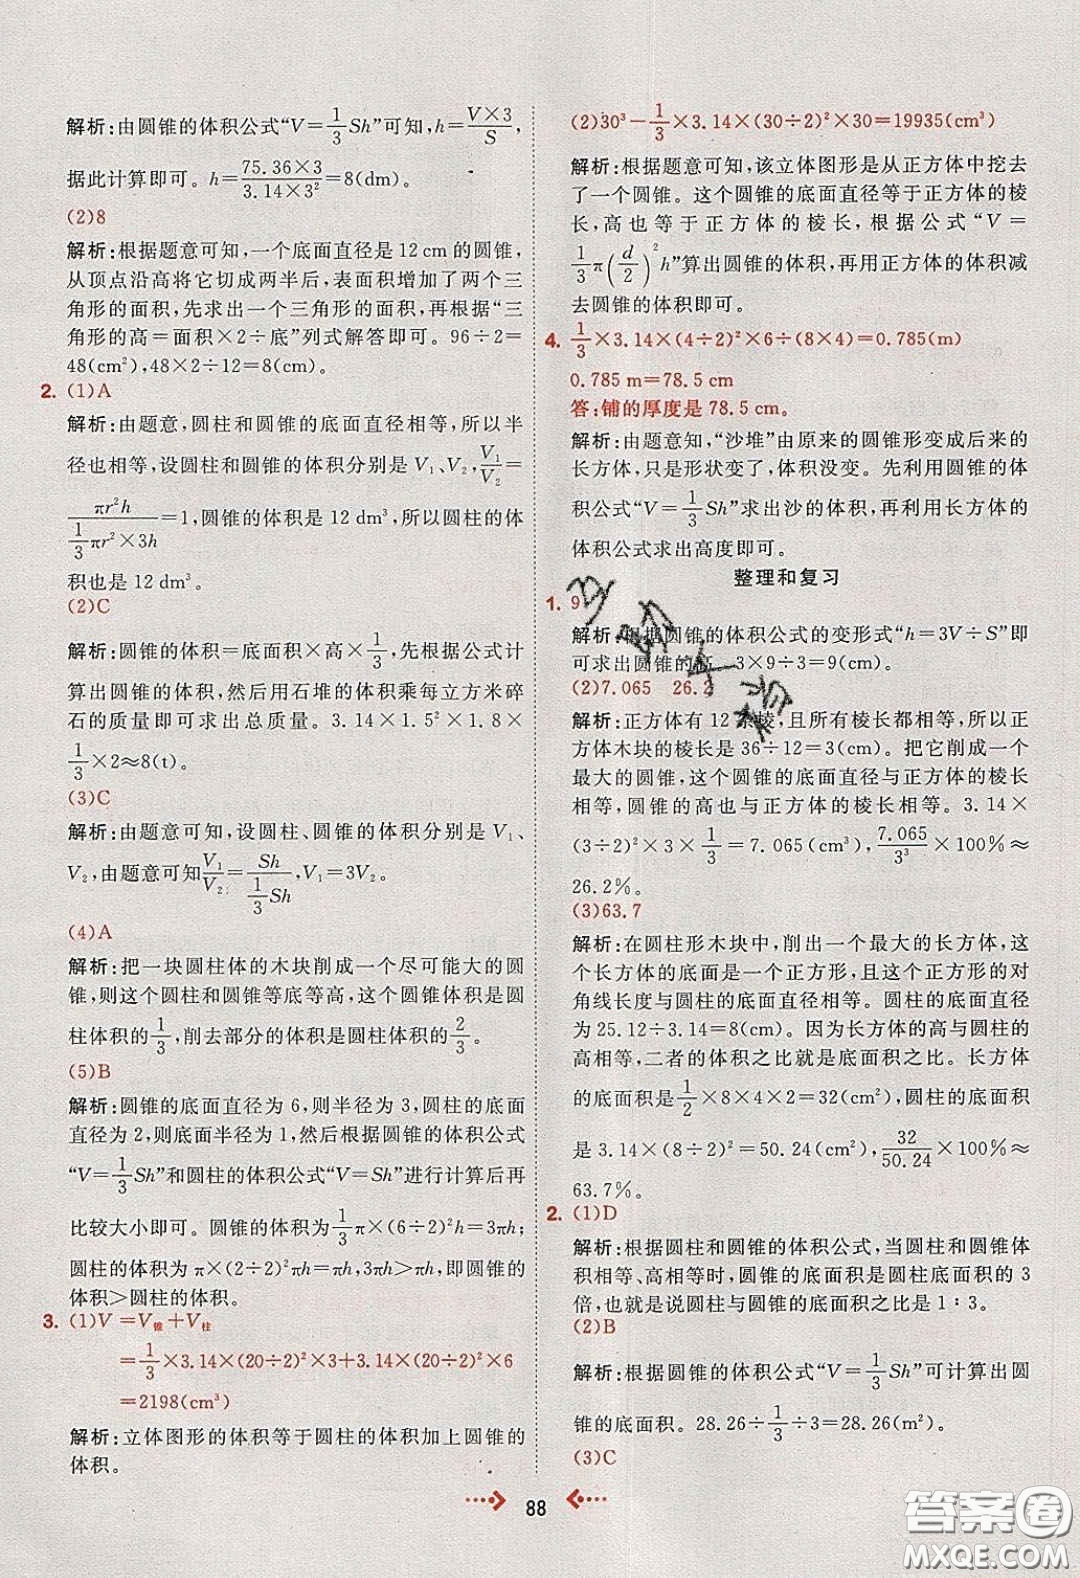 解析:由圆锥的体积公式“V=1/3Sh”可知,h=V×3/S,
据此计算即可。h=75.36×3/3.14×3²=8(dm)。
(2)8
解析:根据题意可知,一个底面直径是 12 cm的圆锥,
从顶点沿高将它切成两半后,表面积增加了两个三
角形的面积,先求出一个三角形的面积,再根据“三
角形的高=面积×2÷底”列式解答即可。96÷2=
48(cm²),48×2÷12=8(cm)。
2. (1)A
解析:由题意,圆柱和圆锥的底面直径相等,所以半
径也相等,设圆柱和圆锥的体积分别是 V₁、V₂,V₁/V₂=
πr²h/(1/3πr²×3h)=1,圆锥的体积是 12 dm³,所以圆柱的体
积也是 12 dm³。
(2)C
解析:圆锥的体积=底面积×高×1/3,先根据公式计
算出圆锥的体积,然后用石堆的体积乘每立方米碎
石的质量即可求出总质量。3.14×1.5²×1.8×
1/3×2≈8(t)。
(3)C
解析:由题意可知,设圆柱、圆锥的体积分别是 V₁、
V₂,由题意可知V₁/V₂=Sh/(1/3Sh),V₁=3V₂。
(4)A
解析:把一块圆柱体的木块削成一个尽可能大的圆
锥,则这个圆柱和圆锥等底等高,这个圆锥体积是圆
柱体积的1/3,削去部分的体积是圆柱体积的2/3。
(5)B
解析:圆锥的底面直径为 6,则半径为 3,圆柱的底面
直径为 2,则底面半径为 1,然后根据圆锥的体积公式
“V=1/3Sh”和圆柱的体积公式“V=Sh”进行计算后再
比较大小即可。圆锥的体积为1/3π×(6÷2)²h=3πh;
圆柱的体积为 π×(2÷2)²πh=πh,3πh>πh,即圆锥的
体积>圆柱的体积。
3. (1)V=V锥+V柱
=1/3×3.14×(20÷2)²×3+3.14×(20÷2)²×6
=2198(cm³)
解析:立体图形的体积等于圆柱的体积加上圆锥的
体积。
(2)30³-1/3×3.14×(30÷2)²×30=19935(cm³)
解析:根据题意可知,该立体图形是从正方体中挖去
了一个圆锥。这个圆锥的底面直径等于正方体的棱
长,高也等于正方体的棱长,根据公式“V=
1/3π(d/2)²h”算出圆锥的体积,再用正方体的体积减
去圆锥的体积即可。
4. 1/3×3.14×(4÷2)²×6÷(8×4)=0.785(m)
0.785 m=78.5 cm
答:铺的厚度是 78.5 cm。
解析:由题意知,“沙堆”由原来的圆锥形变成后来的
长方体,只是形状变了,体积没变。先利用圆锥的体
积公式“V=1/3Sh”求出沙的体积,再利用长方体的
体积公式求出高度即可。
整理和复习
1. 9
解析:根据圆锥的体积公式的变形式“h=3V÷S”即
可求出圆锥的高。3×9÷3=9(cm)。
(2)7.065 26.2
解析:正方体有 12 条棱,且所有棱长都相等,所以正
方体木块的棱长是 36÷12=3(cm)。把它削成一个
最大的圆锥,这个圆锥的底面直径与正方体的棱长
相等,圆锥的高也与正方体的棱长相等。3.14×
(3÷2)²×3×1/3=7.065(cm³),7.065/3³×100%≈
26.2%。
(3)63.7
解析:在圆柱形木块中,削出一个最大的长方体,这
个长方体的底面是一个正方形,且这个正方形的对
角线长度与圆柱的底面直径相等。圆柱的底面直径
为 25.12÷3.14=8(cm)。因为长方体的高与圆柱的
高相等,二者的体积之比就是底面积之比。长方体
的底面积是1/2×8×4×2=32(cm²),圆柱的底面积
是 3.14×(8÷2)²=50.24(cm²),32/50.24×100%≈
63.7%。
2. (1)D
解析:根据圆柱和圆锥的体积公式,当圆柱和圆锥体
积相等、高相等时,圆锥的底面积是圆柱底面积的 3
倍,也就是说圆柱与圆锥的底面积之比是 1∶3。
(2)B
解析:根据圆锥的体积公式“V=1/3Sh”可计算出圆
锥的底面积。28.26÷1/3÷3=28.26(m²)。
(3)C
88
答案圈
MXQE.COM